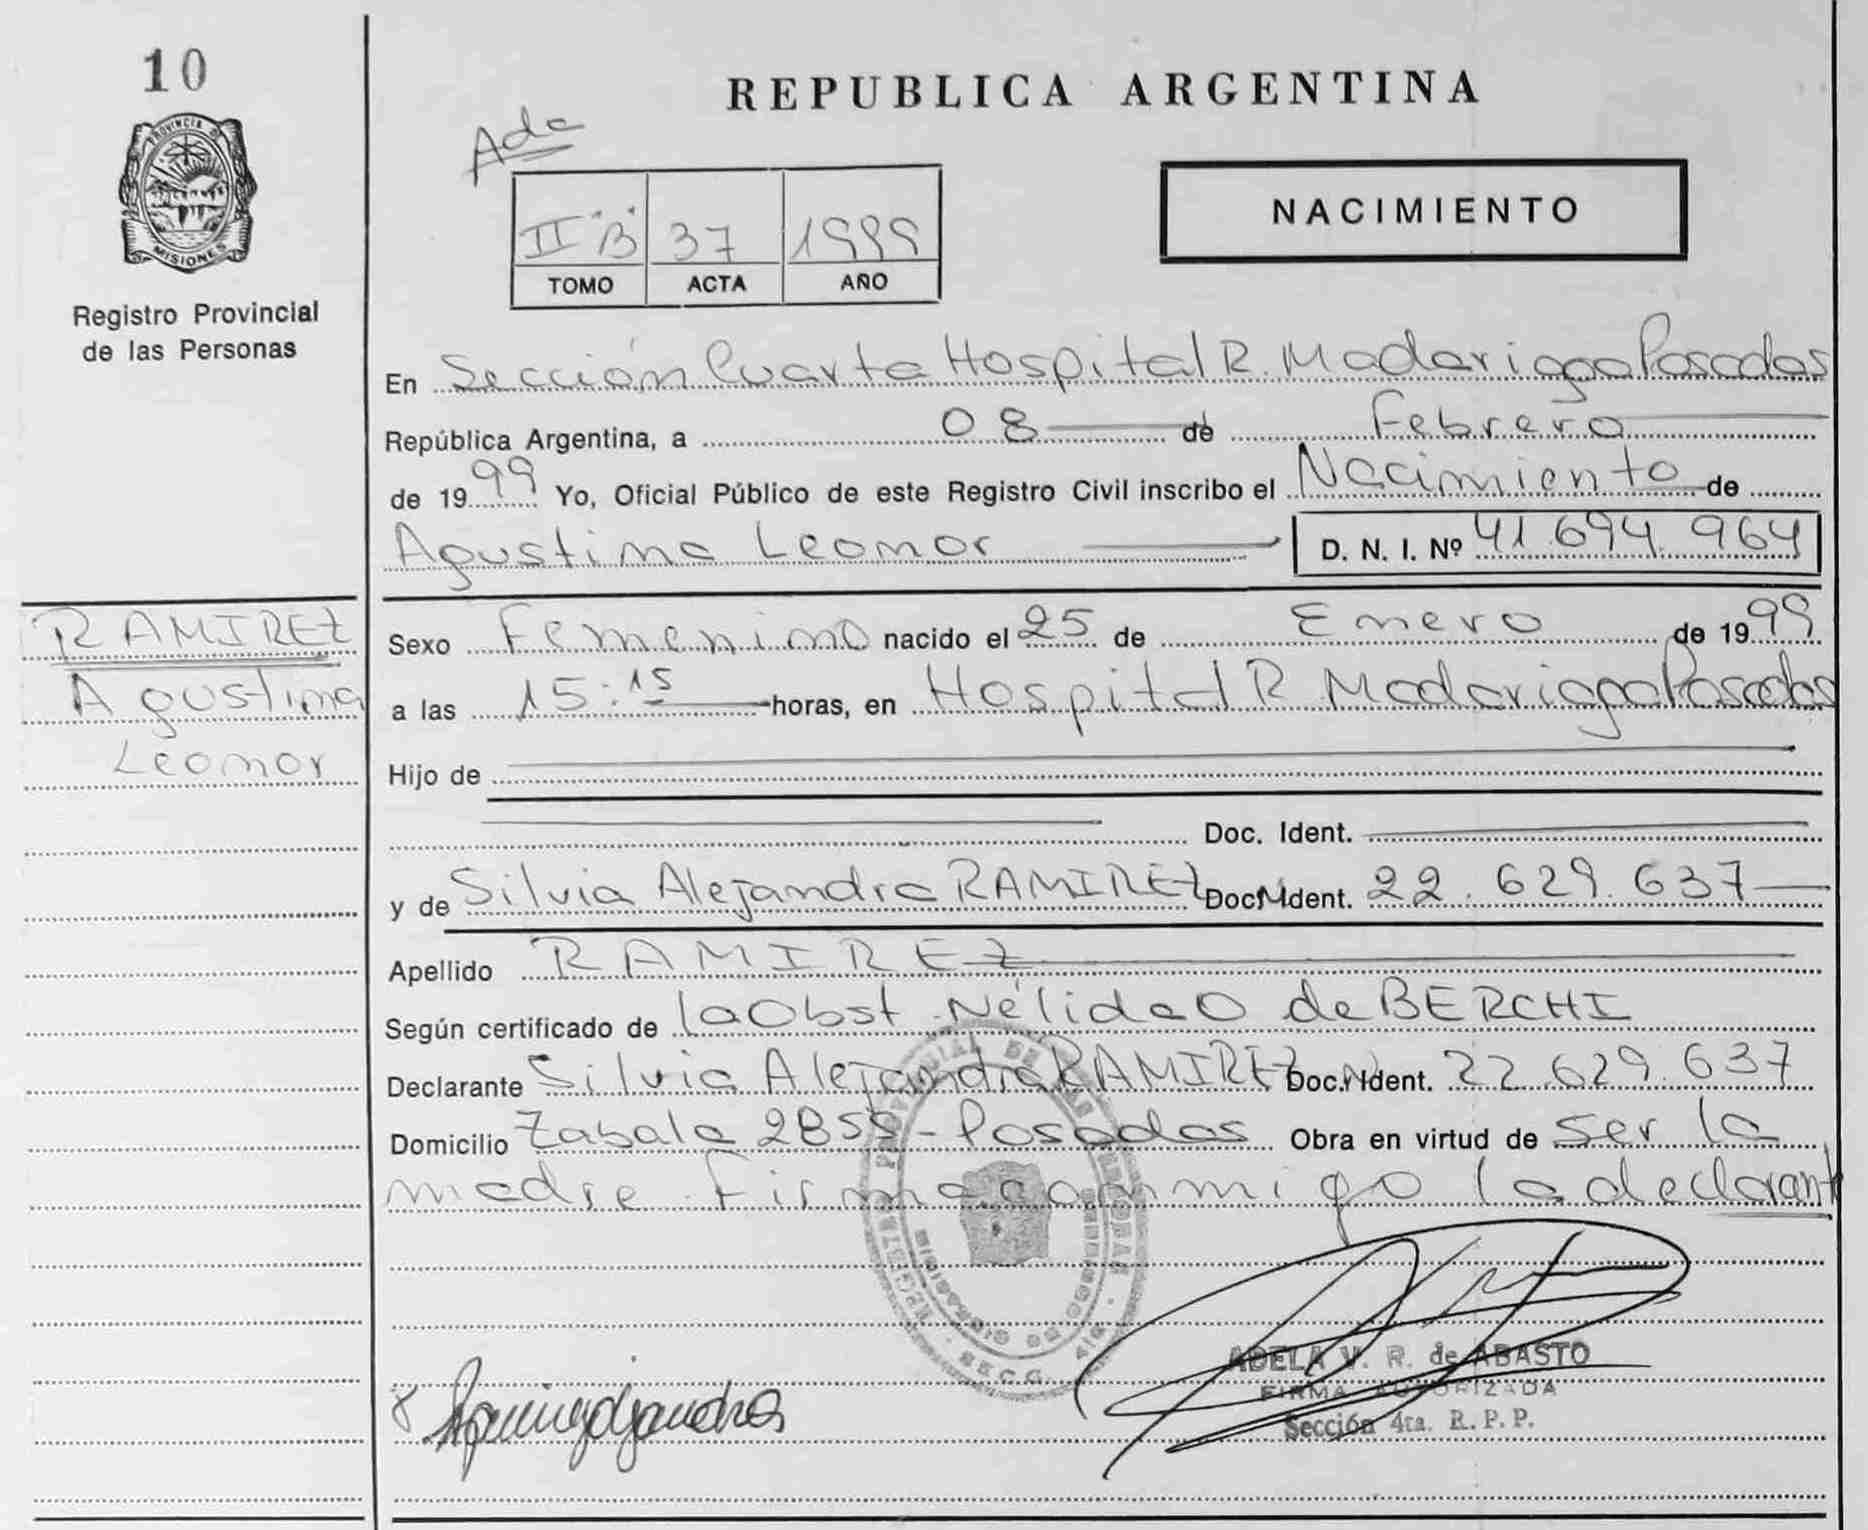 10
PROVINCIA DE
MISIONES
Registro Provincial
de las Personas
REPUBLICA ARGENTINA
Ada
II "B" 37 1999
TOMO ACTA AÑO
NACIMIENTO
En Sección Cuarta Hospital R. Madariaga Posadas
República Argentina, a 08 de Febrero
de 1999 Yo, Oficial Público de este Registro Civil inscribo el Nacimiento de
Agustina Leonor D. N. I. Nº 41.694.964
RAMIREZ
Agustina
Leonor
Sexo Femenino nacido el 25 de Enero de 1999
a las 15:15 horas, en Hospital R. Madariaga Posadas
Hijo de
Doc. Ident.
y de Silvia Alejandra RAMIREZ Doc. Ident. 22.629.637
Apellido RAMIREZ
Según certificado de la Obst. Nélida O de BERCHI
Declarante Silvia Alejandra RAMIREZ Doc. Ident. 22.629.637
Domicilio Zabala 2859 - Posadas Obra en virtud de ser la
madre. Firma conmigo la declarante
ADELA V. R. de ABASTO
FIRMA AUTORIZADA
Sección 4ta. R. P. P.